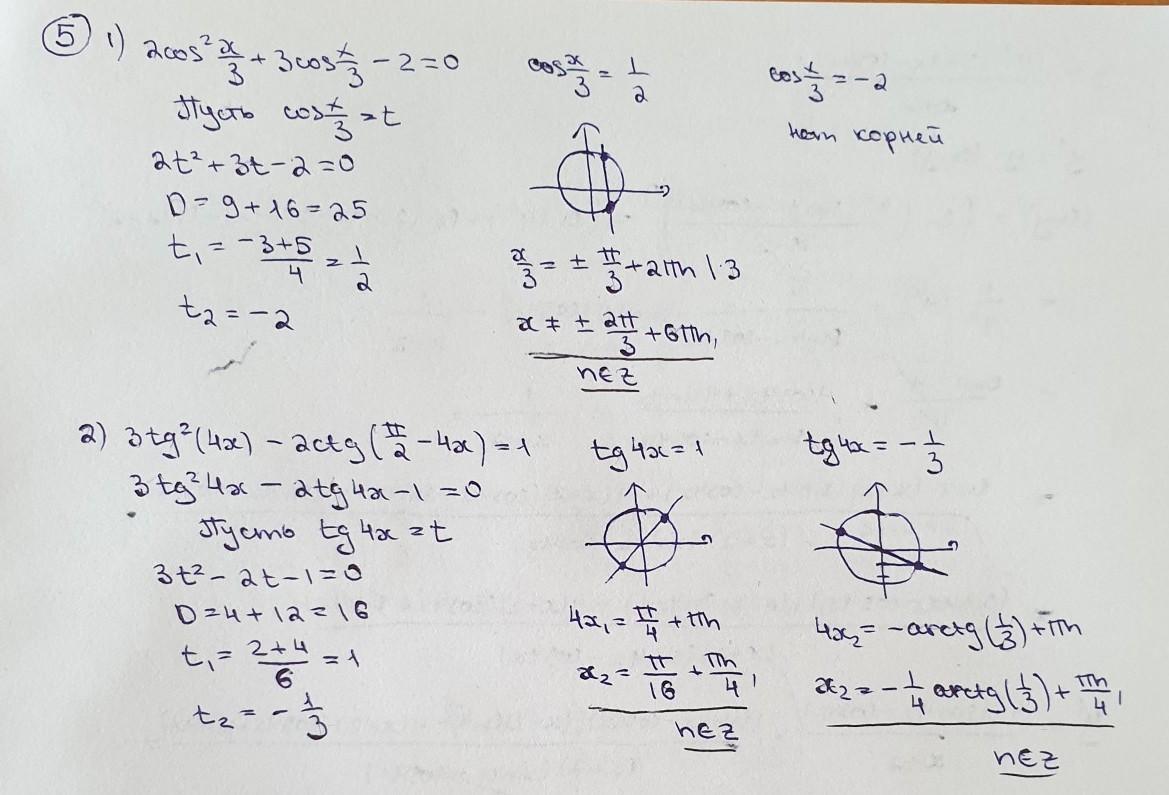 5 1) 2cos² x/3 + 3cos x/3 - 2 = 0
Пусть cos x/3 = t
2t² + 3t - 2 = 0
D = 9 + 16 = 25
t₁ = (-3+5)/4 = 1/2
t₂ = -2
cos x/3 = 1/2
x/3 = ± π/3 + 2πn | ·3
x = ± 2π/3 + 6πn,
n∈Z
cos x/3 = -2
нет корней
2) 3tg²(4x) - 2ctg(π/2 - 4x) = 1
3tg²4x - 2tg4x - 1 = 0
Пусть tg4x = t
3t² - 2t - 1 = 0
D = 4 + 12 = 16
t₁ = (2+4)/6 = 1
t₂ = -1/3
tg4x = 1
4x₁ = π/4 + πn
x₂ = π/16 + πn/4,
n∈Z
tg4x = -1/3
4x₂ = -arctg(1/3) + πn
x₂ = -1/4 arctg(1/3) + πn/4,
n∈Z